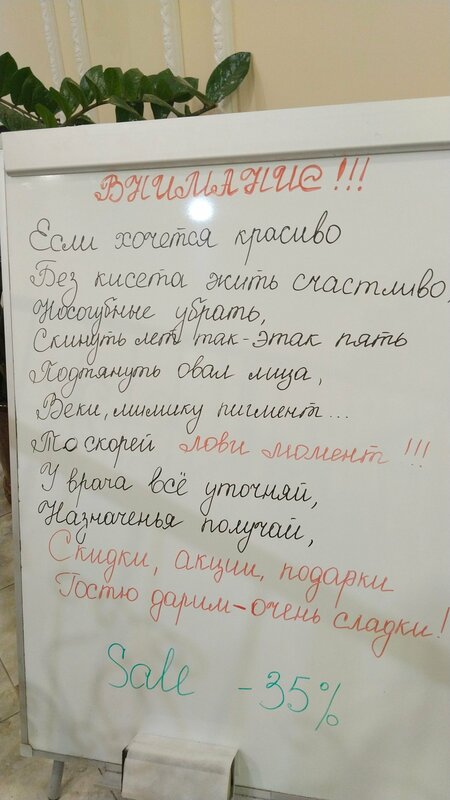 ВНИМАНИЕ!!!
Если хочется красиво
Без кисета жить счастливо,
Носогубные убрать,
Скинуть лет так-этак пять
Подтянуть овал лица,
Веки, мимику пигмент...
То скорей лови момент!!!
У врача всё уточняй,
Назначенья получай,
Скидки, акции, подарки
Гостю дарим-очень сладки!
Sale -35%